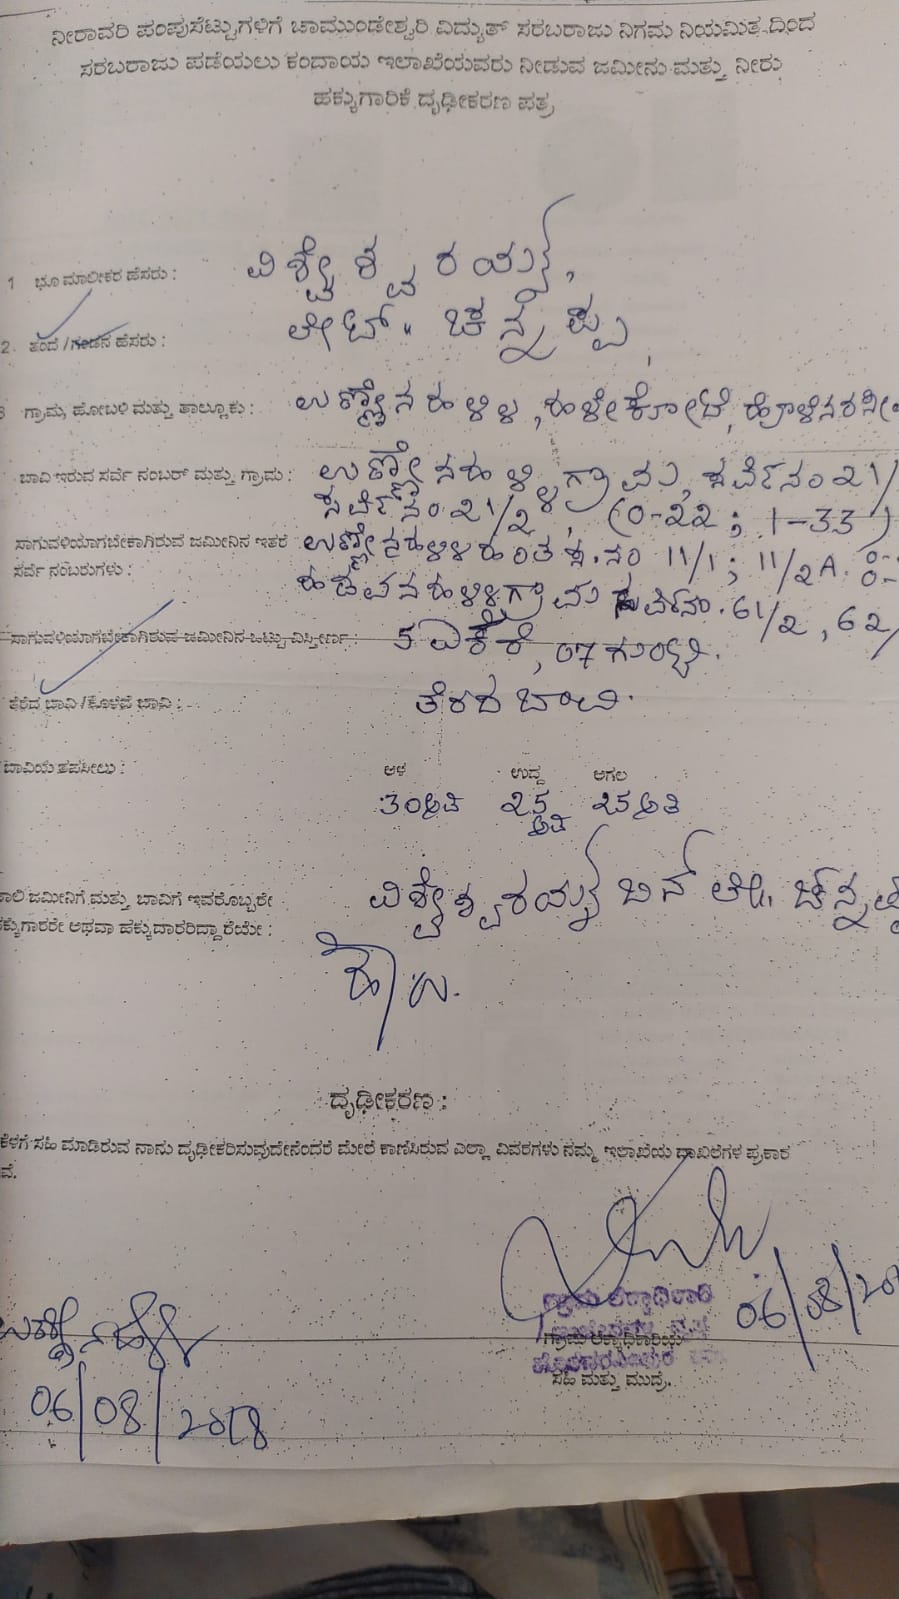 ನೀರಾವರಿ ಪಂಪುಸೆಟ್ಟುಗಳಿಗೆ ಚಾಮುಂಡೇಶ್ವರಿ ವಿದ್ಯುತ್ ಸರಬರಾಜು ನಿಗಮ ನಿಯಮಿತ ದಿಂದ
ಸರಬರಾಜು ಪಡೆಯಲು ಕಂದಾಯ ಇಲಾಖೆಯವರು ನೀಡುವ ಜಮೀನು ಮತ್ತು ನೀರು
ಹಕ್ಕುಗಾರಿಕೆ ದೃಢೀಕರಣ ಪತ್ರ
1 ಭೂ ಮಾಲೀಕರ ಹೆಸರು : ವಿಶ್ವೇಶ್ವರಯ್ಯ,
2. ತಂದೆ /ಗಂಡನ ಹೆಸರು : ಲೇಟ್. ಚನ್ನಪ್ಪ,
3 ಗ್ರಾಮ, ಹೋಬಳಿ ಮತ್ತು ತಾಲ್ಲೂಕು : ಉಣ್ಣೇನಹಳ್ಳಿ, ಹಳೇಕೋಟೆ, ಹೊಳೆನರಸೀ
ಬಾವಿ ಇರುವ ಸರ್ವೆ ನಂಬರ್ ಮತ್ತು ಗ್ರಾಮ : ಉಣ್ಣೇನಹಳ್ಳಿ ಗ್ರಾಮ, ಸರ್ವೆ ನಂ 21/
ಸರ್ವೆ ನಂ. 21/2, (0-22 ; 1-33)
ಸಾಗುವಳಿಯಾಗಬೇಕಾಗಿರುವ ಜಮೀನಿನ ಇತರೆ ಉಣ್ಣೇನಹಳ್ಳಿ ಸ.ನಂ 11/1 ; 11/2A. 0-
ಸರ್ವೆ ನಂಬರುಗಳು : ಗ್ರಾಮ ಸರ್ವೆನಂ. 61/2, 62/
ಸಾಗುವಳಿಯಾಗಬೇಕಾಗಿರುವ ಜಮೀನಿನ ಒಟ್ಟು ವಿಸ್ತೀರ್ಣ : 5 ಎಕರೆ, 07 ಗುಂಟೆ.
ತೆರೆದ ಬಾವಿ /ಕೊಳವೆ ಬಾವಿ : ತೆರದ ಬಾವಿ.
ಬಾವಿಯ ತಪಸೀಲು : ಆಳ ಉದ್ದ ಅಗಲ
30 ಅಡಿ 25 ಅಡಿ 25 ಅಡಿ
ಾಲಿ ಜಮೀನಿಗೆ ಮತ್ತು ಬಾವಿಗೆ ಇವರೊಬ್ಬರೇ ವಿಶ್ವೇಶ್ವರಯ್ಯ ಬಿನ್ ಲೇ. ಚನ್ನಪ್ಪ
ಕ್ಕುಗಾರರೇ ಅಥವಾ ಹಕ್ಕುದಾರರಿದ್ದಾರೆಯೇ :
ದೃಢೀಕರಣ :
ಕೆಳಗೆ ಸಹಿ ಮಾಡಿರುವ ನಾನು ದೃಢೀಕರಿಸುವುದೇನೆಂದರೆ ಮೇಲೆ ಕಾಣಿಸಿರುವ ಎಲ್ಲಾ ವಿವರಗಳು ನಮ್ಮ ಇಲಾಖೆಯ ದಾಖಲೆಗಳ ಪ್ರಕಾರ
ವೆ.
ಗ್ರಾಮ ಲೆಕ್ಕಾಧಿಕಾರಿ
06/08/20
ಗ್ರಾಮ ಲೆಕ್ಕಾಧಿಕಾರಿಯ
ಸಹಿ ಮತ್ತು ಮುದ್ರೆ.
ಉಣ್ಣೇನಹಳ್ಳಿ
06/08/2018